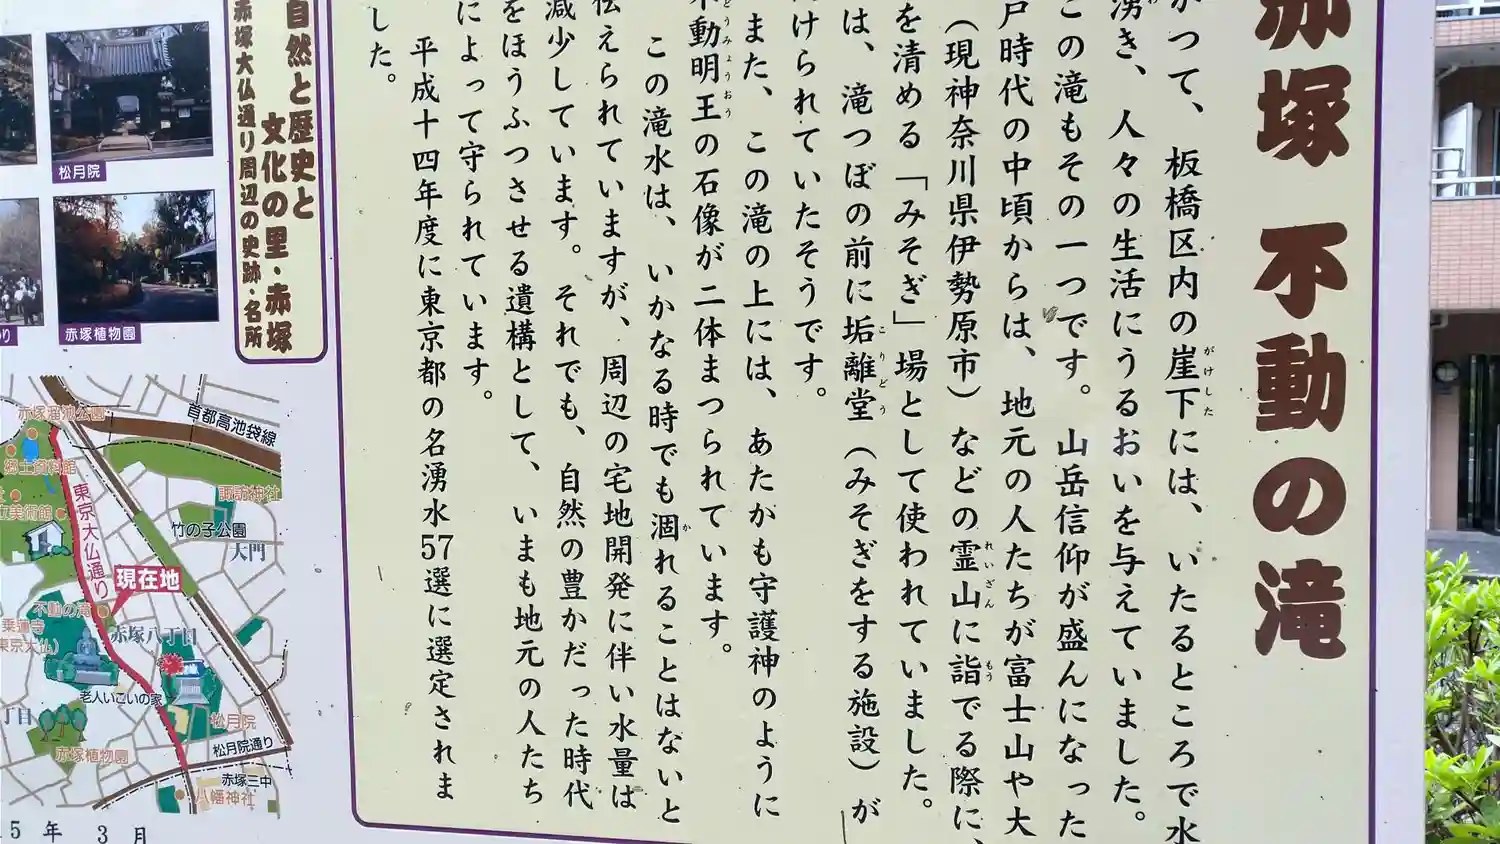 赤塚 不動の滝
かつて、板橋区内の崖下には、いたるところで水
湧き、人々の生活にうるおいを与えていました。
この滝もその一つです。山岳信仰が盛んになった
戸時代の中頃からは、地元の人たちが富士山や大
(現神奈川県伊勢原市)などの霊山に詣でる際に、
を清める「みそぎ」場として使われていました。
は、滝つぼの前に垢離堂(みそぎをする施設)が
けられていたそうです。
また、この滝の上には、あたかも守護神のように
不動明王の石像が二体まつられています。
この滝水は、いかなる時でも涸れることはないと
伝えられていますが、周辺の宅地開発に伴い水量は
減少しています。それでも、自然の豊かだった時代
をほうふつさせる遺構として、いまも地元の人たち
によって守られています。
平成十四年度に東京都の名湧水57選に選定されま
した。
がけした
れいざん
もう
こりどう
どうみょうおう
か
自然と歴史と
文化の里・赤塚
赤塚大仏通り周辺の史跡・名所
松月院
赤塚植物園
り
首都高池袋線
赤塚溜池公園
郷土資料館
立美術館
東京大仏通り
諏訪神社
竹の子公園
大門
現在地
不動の滝
乗蓮寺
東京大仏)
赤塚八丁目
老人いこいの家
丁目
松月院
赤塚植物園
松月院通り
赤塚三中
八幡神社
5年 3月